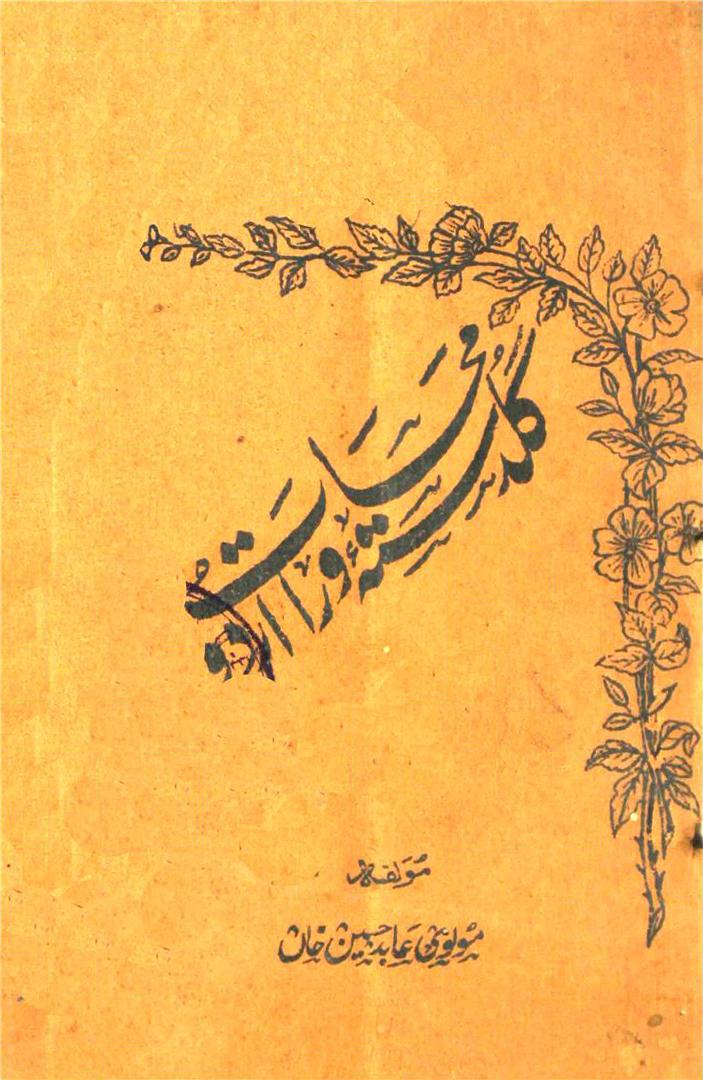 گلدستۂ محاورات اردو
مؤلفہ
مولوی عابد حسین خان